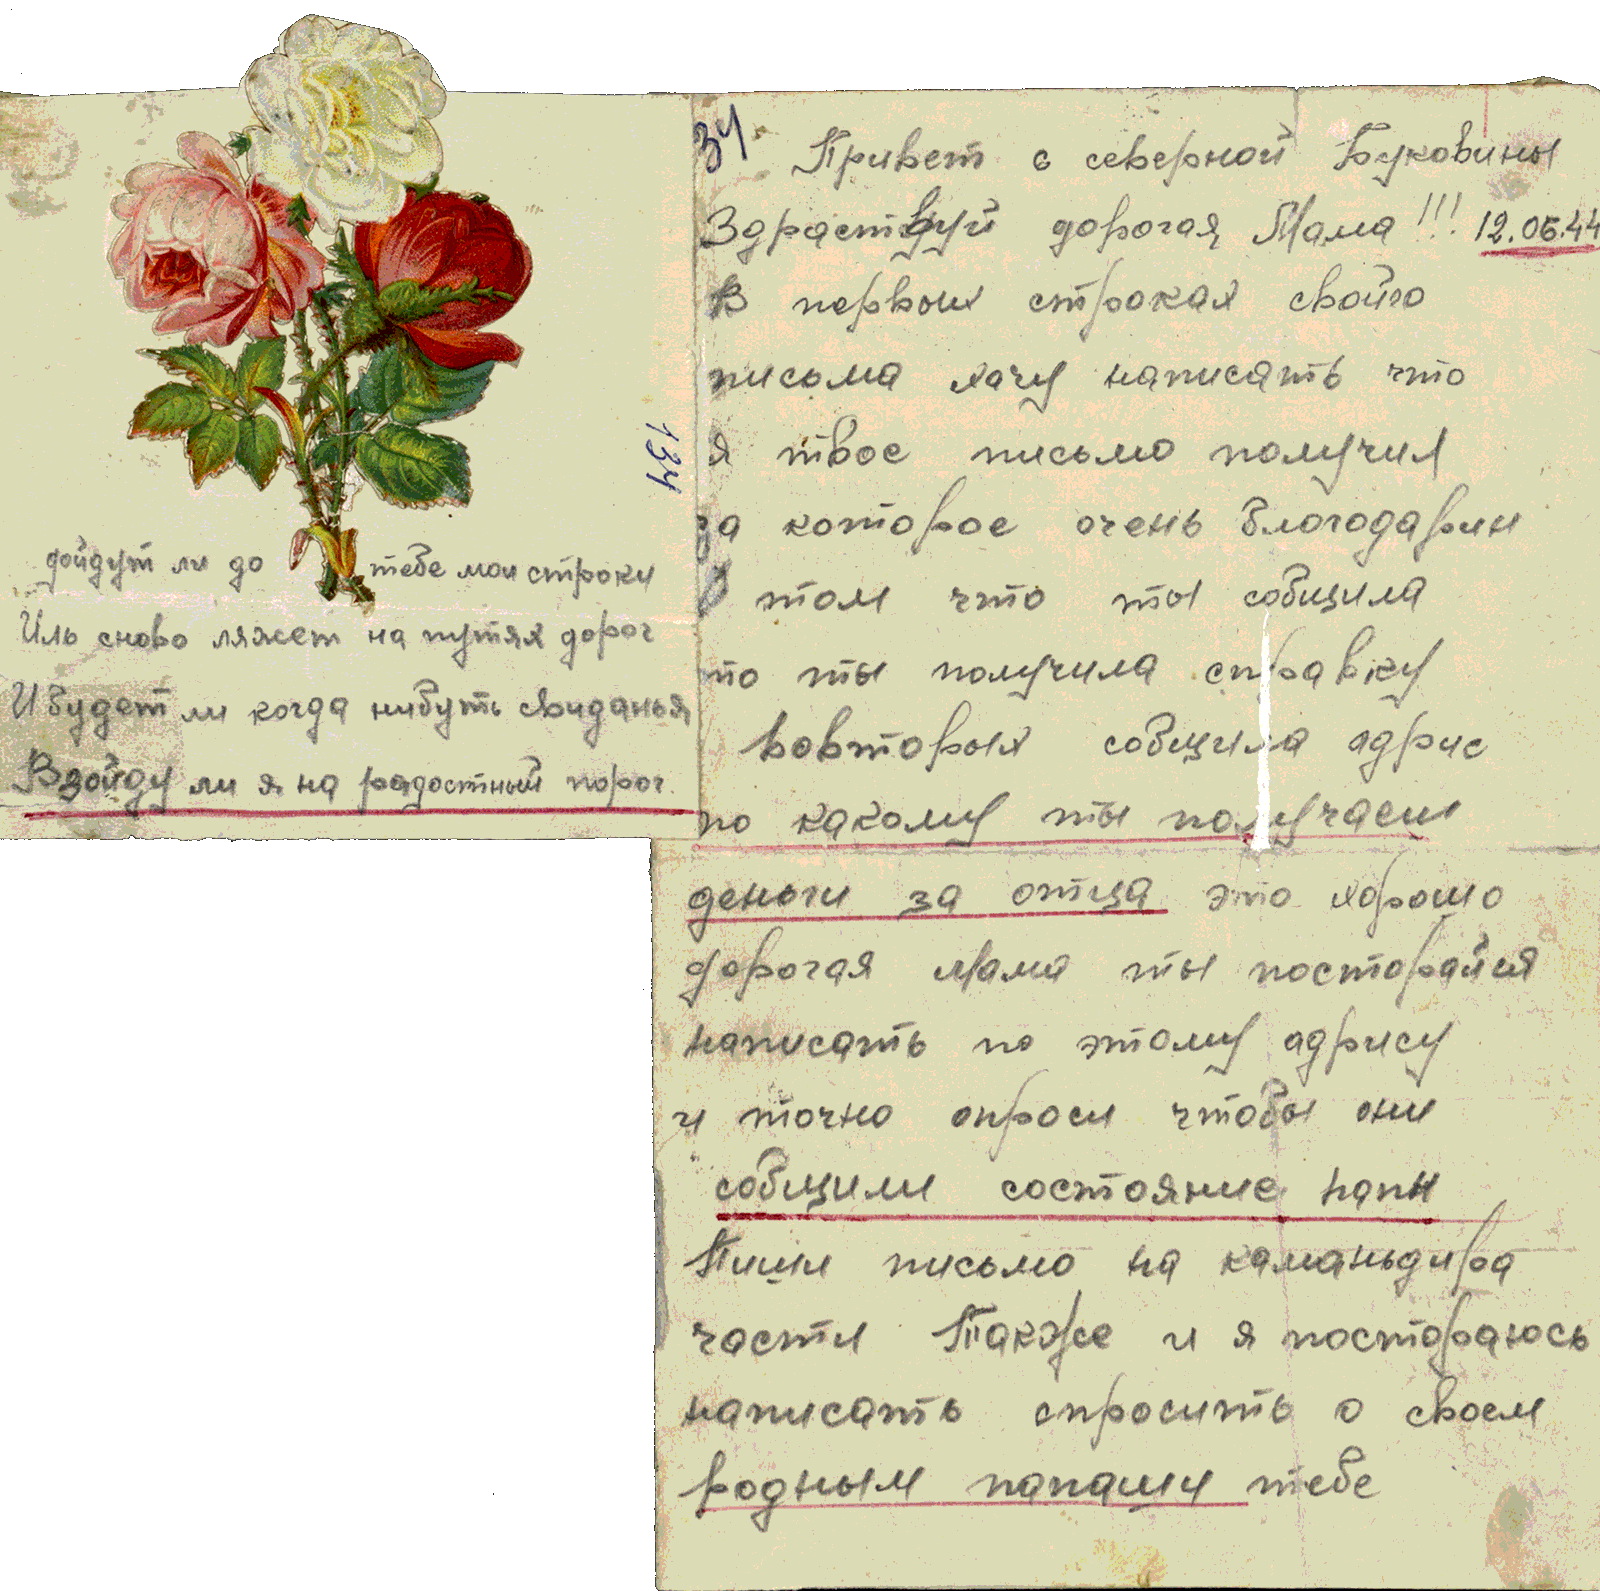 дойдут ли до тебе мои строки
Иль сново ляжет на путях дорог
И будет ли когда нибуть свиданья
Взойду ли я на радостный порог.
134
34
Привет с северной Буковины
Здраствуй дорогая Мама!!! 12.06.44
В первых строках свойго
письма хачу написать что
я твое письмо получил
за которое очень благодарин
В том что ты собщила
то ты получила справку
вовторых собщила адрис
по какому ты получаеш
деньги за отца это хорошо
дорогая Мама ты посторайся
написать по этому адрису
и точно опроси чтобы они
собщили состояние папы
Пиши письмо на каманьдира
части Также и я постораюсь
написать спросить о своем
родным папаши тебе